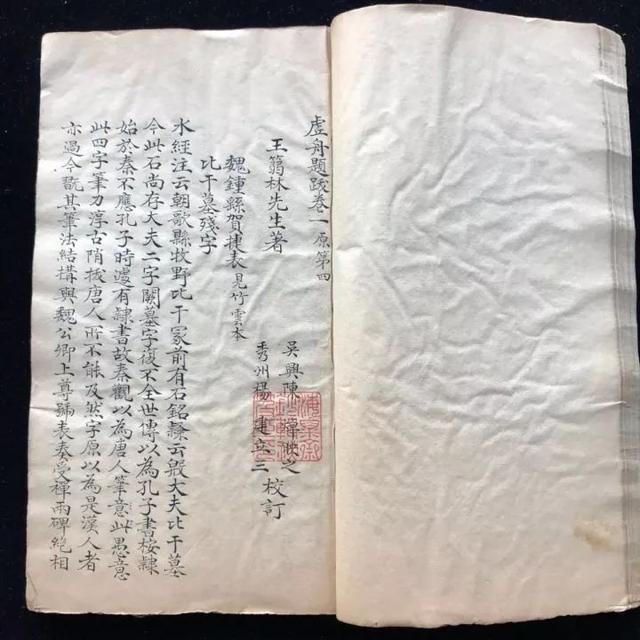 虛舟題跋卷一 原第四
王篛林先生著
吳興陳焯映之
秀州楊建立三
校訂
魏鍾繇賀捷表 見竹雲本
比干墓殘字
水經注云朝歌縣牧野比干冢前有石銘隸云殷大夫比干墓
今此石尚存大夫二字闕墓字復不全世傳以為孔子書按隸
始於秦不應孔子時遽有隸書故秦觀以為唐人筆意此愚意
此四字筆力淳古隋唐人所不能及然字原以為是漢人者
亦過今觀其筆法結構與魏公卿上尊號表奏受禪兩碑絕相